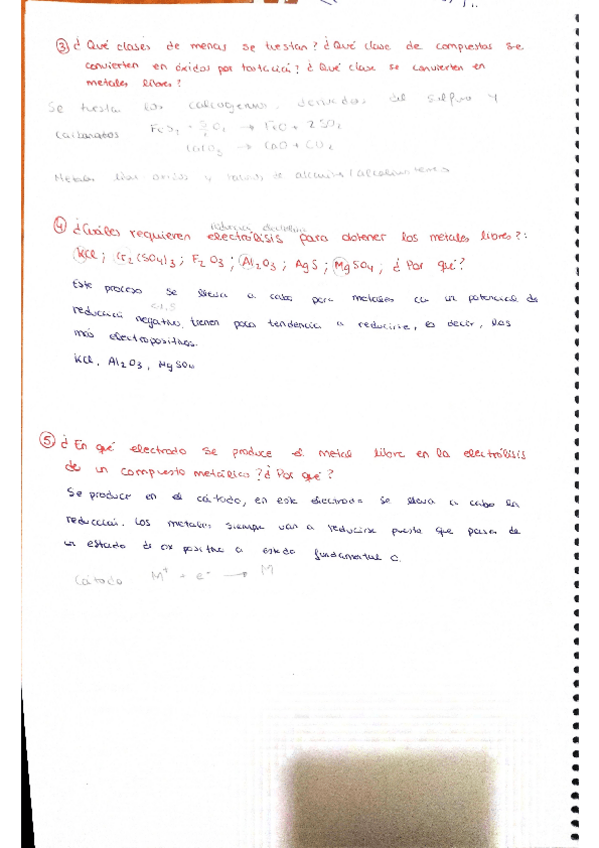 ③ ¿Qué clases de menas se tuestan? ¿Qué clase de compuestos se
convierten en óxidos por tostación? ¿Qué clase se convierten en
metales libres?
Se tuestan los calcogenuros, derivados del sulfuro y
carbonatos FeS₂ + O₂ → FeO + 2SO₂
CaCO₃ → CaO + CO₂
Metales libres óxidos y de alcalinos/alcalinoterreos
④ ¿Cuáles requieren electrólisis para obtener los metales libres?:
KCl; Cr₂(SO₄)₃; F₂O₃; Al₂O₃; AgS; MgSO₄; ¿Por qué?
Este proceso se lleva a cabo para metales con un potencial de
reducción negativo, tienen poca tendencia a reducirse, es decir, los
más electropositivos.
KCl, Al₂O₃, MgSO₄
⑤ ¿En qué electrodo se produce el metal libre en la electrólisis
de un compuesto metálico? ¿Por qué?
Se produce en el cátodo, en este electrodo se lleva a cabo la
reducción. Los metales siempre van a reducirse puesto que pasan de
un estado de ox positivo a estado fundamental 0.
Cátodo M⁺ + e⁻ → M